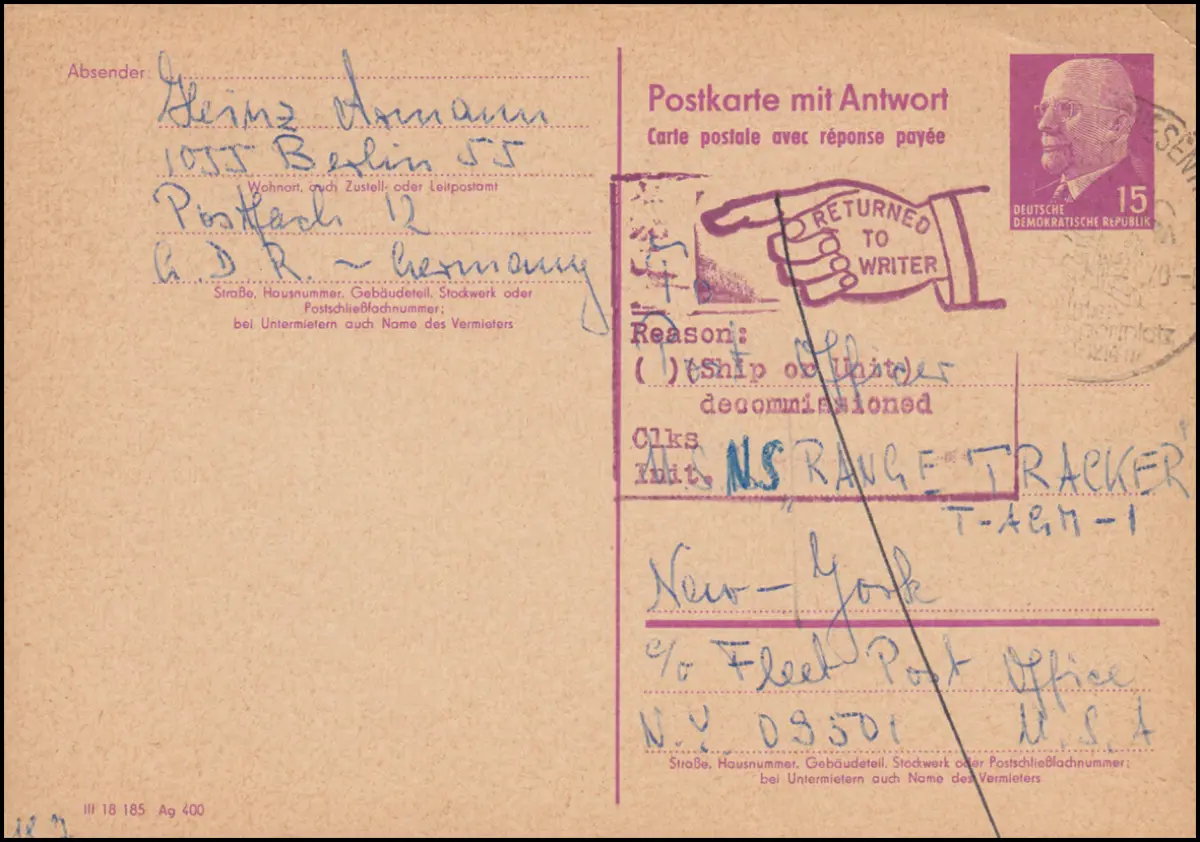 Absender
Heinz Asmann
1055 Berlin 55
Wohnort, auch Zustell- oder Leitpostamt
Postfach 12
G.D.R. - Germany
Straße, Hausnummer, Gebäudeteil, Stockwerk oder
Postschließfachnummer;
bei Untermietern auch Name des Vermieters
III 18 185 Ag 400
18.7.
Postkarte mit Antwort
Carte postale avec réponse payée
15
DEUTSCHE
DEMOKRATISCHE REPUBLIK
RETURNED
TO
WRITER
To
Reason:
( )(Ship or Unit)
decommissioned
Clks
Init.
NS
Post Officer
U.S.N.S. „RANGE TRACKER"
T-AGM-1
New-York
c/o Fleet Post Office
N.Y. 09501 U.S.A
Straße, Hausnummer, Gebäudeteil, Stockwerk oder Postschließfachnummer;
bei Untermietern auch Name des Vermieters